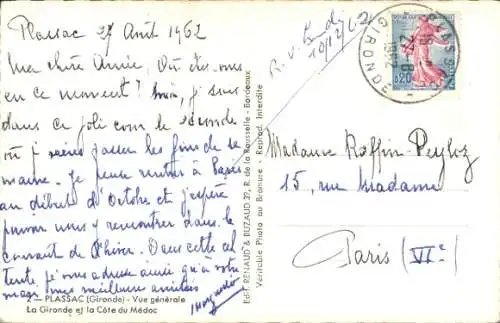 Plassac 27 Août 1962
Ma chère Amie, Où êtes-vous
en ce moment ? Moi, je suis
dans ce joli coin de
où j' passer les fins de se
maine. Je pense rentrer à Paris
au début d'Octobre et j'espère
pouvoir vous y rencontrer dans le
courant de l'hiver. Dans cette at
tente, je vous adresse ainsi qu'à votre
mes meilleures amitiés
2 — PLASSAC (Gironde) - Vue générale
La Gironde et la Côte du Médoc
Edit. RENAUD & BUZAUD 39, R. de la Rousselle - Bordeaux
Véritable Photo au Bromure - Reprod. Interdite
10/12/62
GIRONDE
1962
0,20
Madame Roffin-Peyloz
15, rue Madame
Paris (VIe)